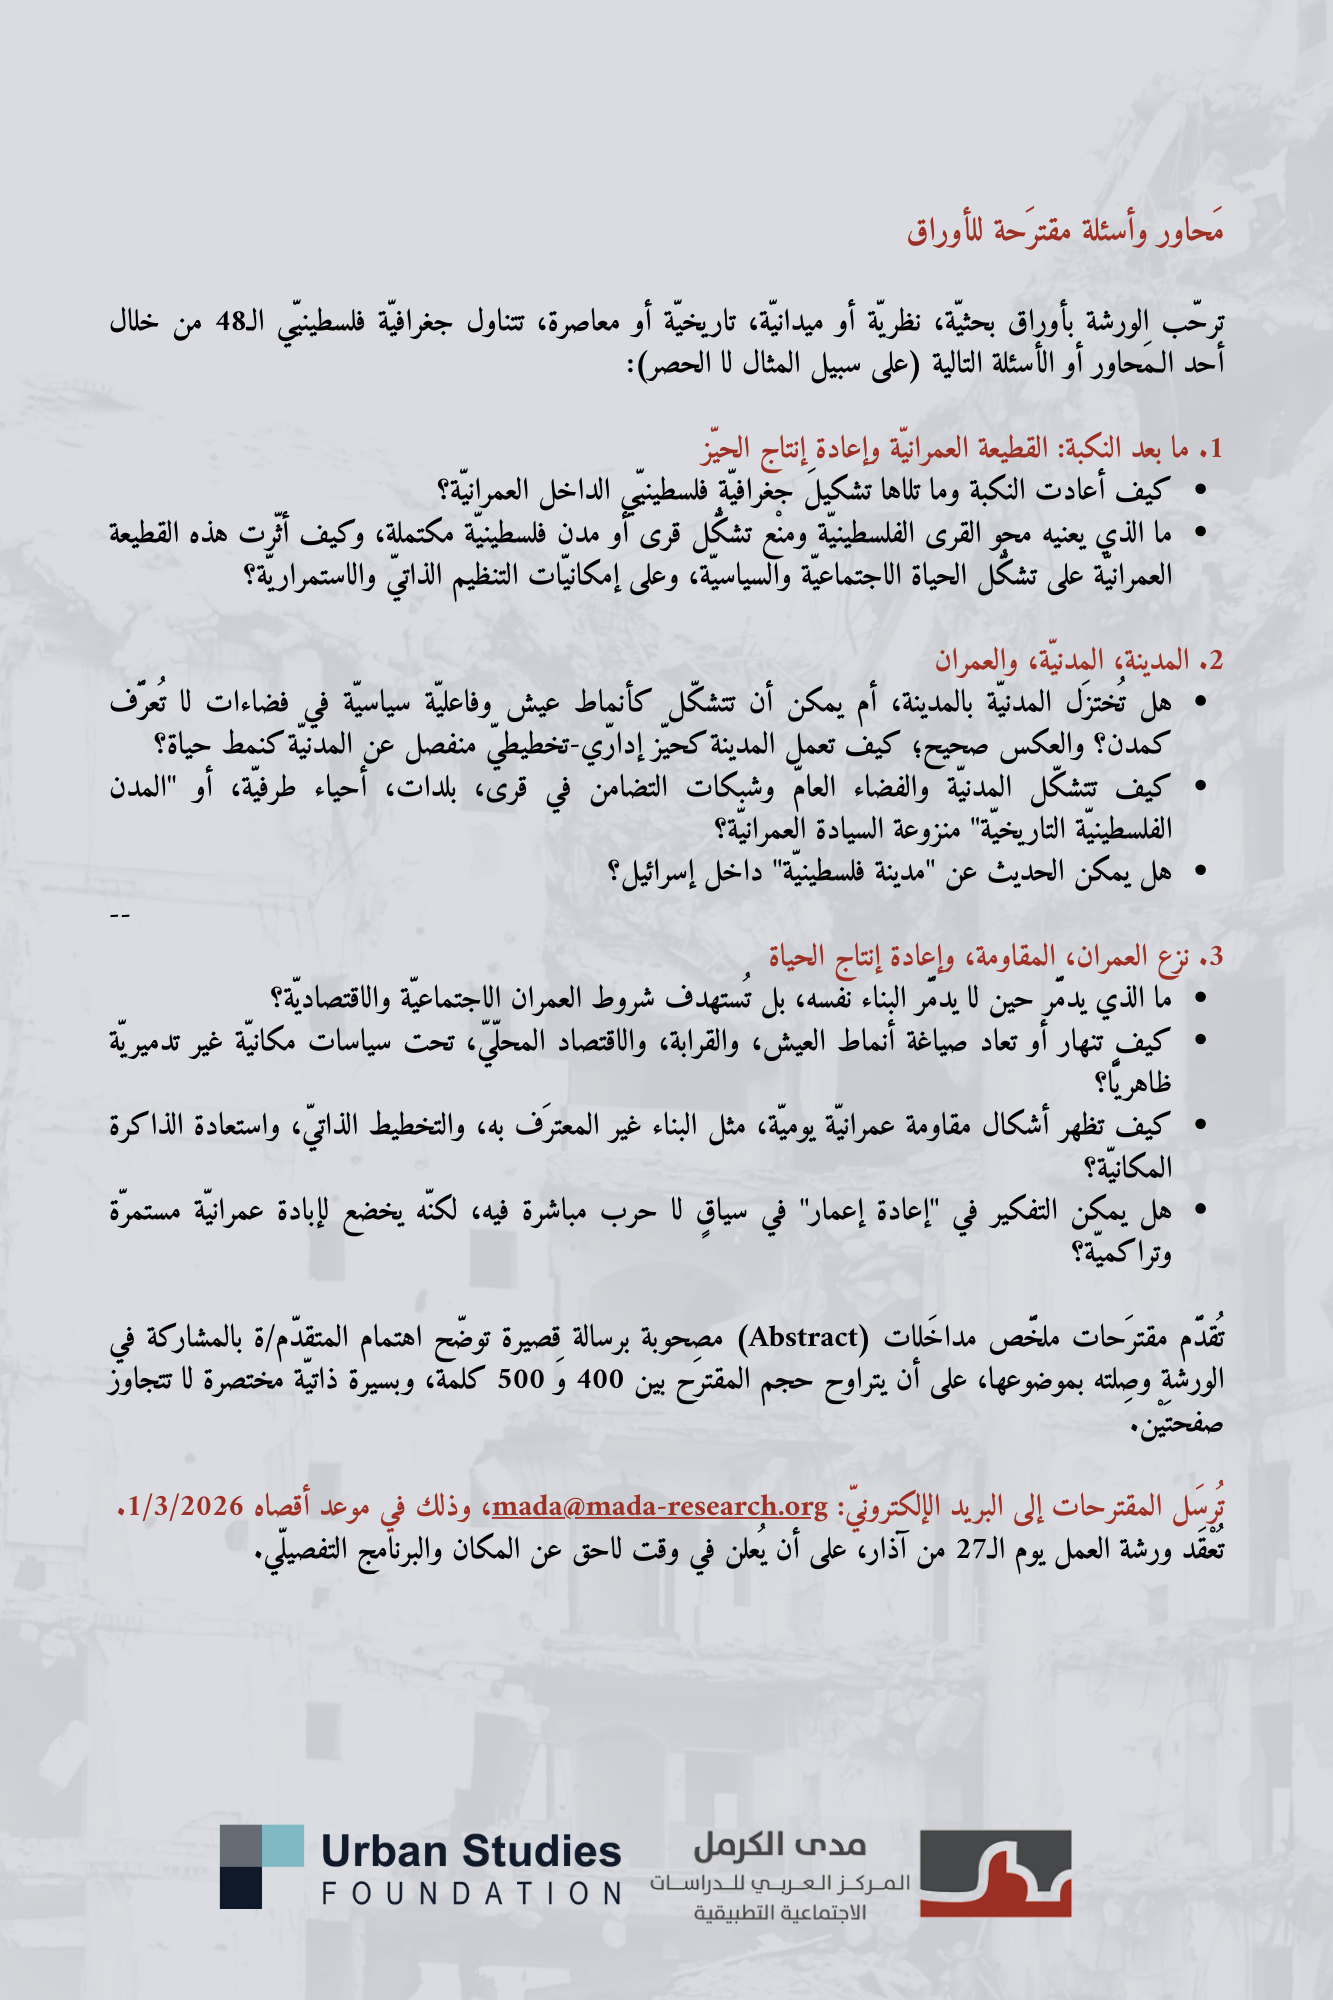 مَحاور وأسئلة مقترَحة للأوراق
ترحّب الورشة بأوراق بحثيّة، نظريّة أو ميدانيّة، تاريخيّة أو معاصرة، تتناول جغرافيّة فلسطينيّي الـ48 من خلال
أحد الـمَحاور أو الأسئلة التالية (على سبيل المثال لا الحصر):
1. ما بعد النكبة: القطيعة العمرانيّة وإعادة إنتاج الحيّز
• كيف أعادت النكبة وما تلاها تشكيلَ جغرافيّةِ فلسطينيّي الداخل العمرانيّة؟
• ما الذي يعنيه محو القرى الفلسطينيّة ومنْع تشكُّل قرى أو مدن فلسطينيّة مكتملة، وكيف أثّرت هذه القطيعة
العمرانيّة على تشكُّل الحياة الاجتماعيّة والسياسيّة، وعلى إمكانيّات التنظيم الذاتيّ والاستمراريّة؟
2. المدينة، المدنيّة، والعمران
• هل تُختزَل المدنيّة بالمدينة، أم يمكن أن تتشكّل كأنماط عيش وفاعليّة سياسيّة في فضاءات لا تُعرَّف
كمدن؟ والعكس صحيح؛ كيف تعمل المدينة كحيّز إدارّي-تخطيطيّ منفصل عن المدنيّة كنمط حياة؟
• كيف تتشكّل المدنيّة والفضاء العامّ وشبكات التضامن في قرى، بلدات، أحياء طرفيّة، أو "المدن
الفلسطينيّة التاريخيّة" منزوعة السيادة العمرانيّة؟
• هل يمكن الحديث عن "مدينة فلسطينيّة" داخل إسرائيل؟
--
3. نزع العمران، المقاومة، وإعادة إنتاج الحياة
• ما الذي يدمَّر حين لا يدمَّر البناء نفسه، بل تُستهدف شروط العمران الاجتماعيّة والاقتصاديّة؟
• كيف تنهار أو تعاد صياغة أنماط العيش، والقرابة، والاقتصاد المحلّيّ، تحت سياسات مكانيّة غير تدميريّة
ظاهريًّا؟
• كيف تظهر أشكال مقاومة عمرانيّة يوميّة، مثل البناء غير المعترَف به، والتخطيط الذاتيّ، واستعادة الذاكرة
المكانيّة؟
• هل يمكن التفكير في "إعادة إعمار" في سياقٍ لا حرب مباشرة فيه، لكنّه يخضع لإبادة عمرانيّة مستمرّة
وتراكميّة؟
تُقدَّم مقترَحات ملخَّص مداخَلات (Abstract) مصحوبة برسالة قصيرة توضّح اهتمام المتقدّم/ة بالمشاركة في
الورشة وصِلته بموضوعها، على أن يتراوح حجم المقترَح بين 400 وَ 500 كلمة، وبسيرة ذاتيّة مختصرة لا تتجاوز
صفحتَيْن.
تُرسَل المقترحات إلى البريد الإلكترونيّ: mada@mada-research.org، وذلك في موعد أقصاه 1/3/2026.
تُعْقَد ورشة العمل يوم الـ27 من آذار، على أن يُعلن في وقت لاحق عن المكان والبرنامج التفصيلّي.
مدى الكرمل
المركز العربي للدراسات
الاجتماعية التطبيقية
Urban Studies
FOUNDATION